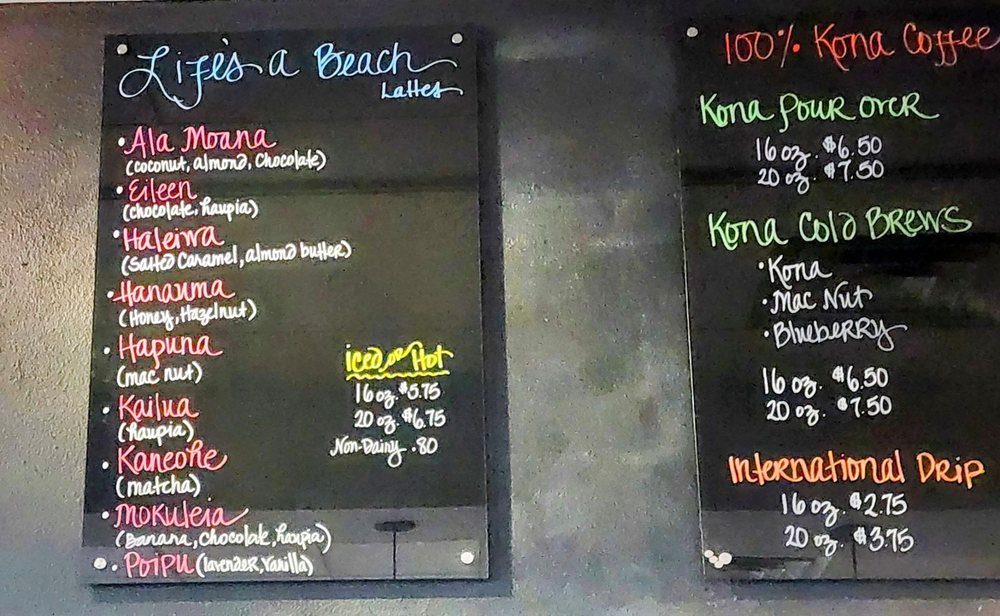 Life's a Beach
Lattes
• Ala Moana
(coconut, almond, Chocolate)
• Eileen
(chocolate, haupia)
• Haleiwa
(Salted Caramel, almond butter)
• Hanauma
(Honey, Hazelnut)
• Hapuna
(mac nut)
• Kailua
(haupia)
• Kaneohe
(matcha)
• Mokuleia
(Banana, chocolate, haupia)
• Poipu (lavender, vanilla)
iced or Hot
16 oz. $5.75
20 oz. $6.75
Non-Dairy .80
100% Kona Coffee
Kona Pour Over
16 oz. $6.50
20 oz. $7.50
Kona Cold Brews
• Kona
• Mac Nut
• Blueberry
16 oz. $6.50
20 oz. $7.50
International Drip
16 oz. $2.75
20 oz. $3.75